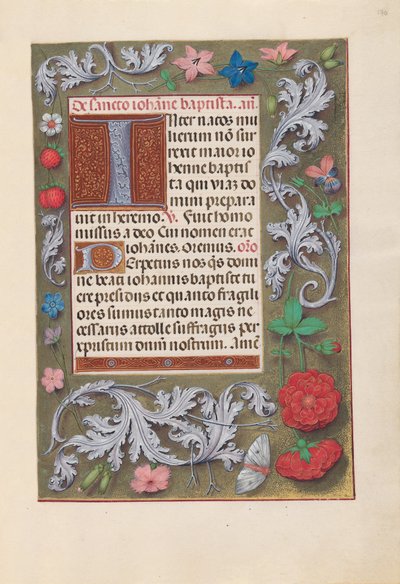 De sancto iohāne baptista. añ.
Inter natos mu
lierum nō sur
rexit maior io
henne baptis
ta qui viaz do
mini prepara
uit in heremo. ℣. Fuit homo
missus a deo Cui nomen erat
iohānes. Oremus. oro
Perpetuis nos q̄s domi
ne beati iohannis baptiste tu
ere presidiis et quanto fragili
ores sumus tanto magis ne
cessariis attolle suffragiis per
xpristum dnūm nostrum. Amē